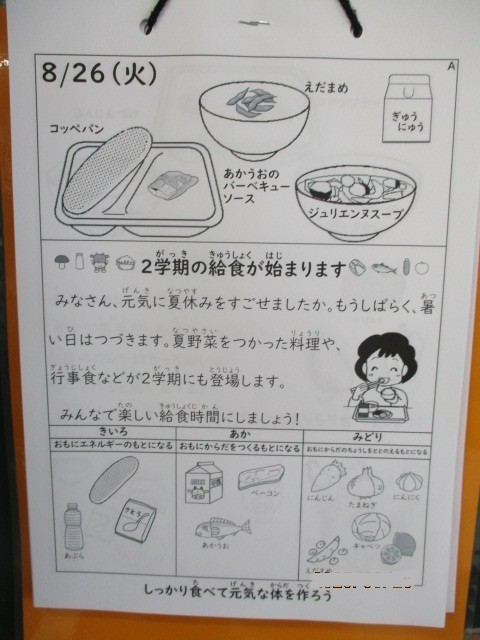 8/26(火)
A
えだまめ
ぎゅう
にゅう
コッペパン
あかうおの
バーベキュー
ソース
ジュリエンヌスープ
2学期の給食が始まります
みなさん、元気に夏休みをすごせましたか。もうしばらく、暑
い日はつづきます。夏野菜をつかった料理や、
行事食などが2学期にも登場します。
みんなで楽しい給食時間にしましょう!
きいろ
おもにエネルギーのもとになる
あか
おもにからだをつくるもとになる
みどり
おもにからだのちょうしをととのえるもとになる
さとう
あぶら
ベーコン
あかうお
にんじん
たまねぎ
にんにく
キャベツ
しっかり食べて元気な体を作ろう